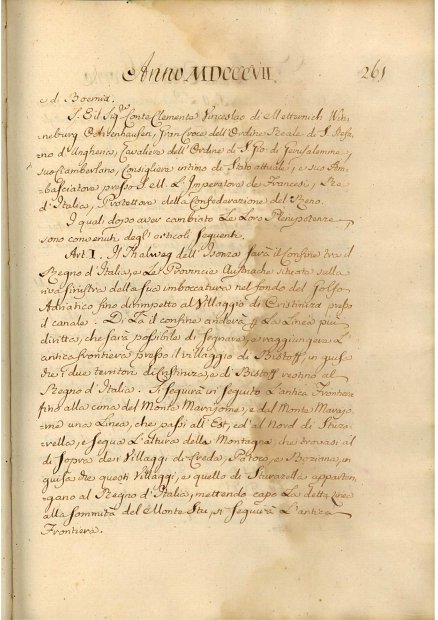 Anno MDCCCVII. 261
e di Boemia.
S. E. il Sig.r Conte Clemente Vinceslao di Metternich Win-
neburg Ochsenhausen, Gran Croce dell'Ordine Reale di S. Stefa-
no d'Ungheria, Cavaliere dell'Ordine di S. Gio: di Jerusalemme,
suo Ciamberlano, Consigliere intimo di Stato attuale, e suo Am-
basciatore presso S. M. L'Imperatore de Francesi, Re
d'Italia, Protettore della Confederazione del Reno.
I quali dopo aver cambiato Le Loro Plenipotenze
sono convenuti degli articoli seguenti.
Art: I. Il Thalweg dell'Isonzo sarà il Confine tra il
Regno d'Italia, e Le Provincie Austriache situate sulla
riva sinistra della sua imboccatura nel fondo del Golfo
Adriatico fino dirimpetto al Villaggio di Cristiniza presso
il canale. Di Là il confine anderà p La Linea più
diritta, che sarà possibile di segnare, a raggiungere L'
antica frontiera presso il villaggio di Bistoff, in guisa
che i due territori di Cristiniza, e di Bistoff restino al
Regno d'Italia. Si seguirà in seguito L'antica Frontiera
fino alla cima del Monte Marajome, e dal Monte Marajo-
me una Linea, che passi all'Est, ed al Nord di Stura-
rella, e segua L'altura della Montagna, che trovasi al
di sopra dei Villaggi di Creda, Patoce, e Borziana, in
guisa che questi Villaggi, e quello di Sturarella apparten-
gano al Regno d'Italia; mettendo capo La detta Linea
alla sommità del Monte Stu, si seguirà L'antica
Frontiera.